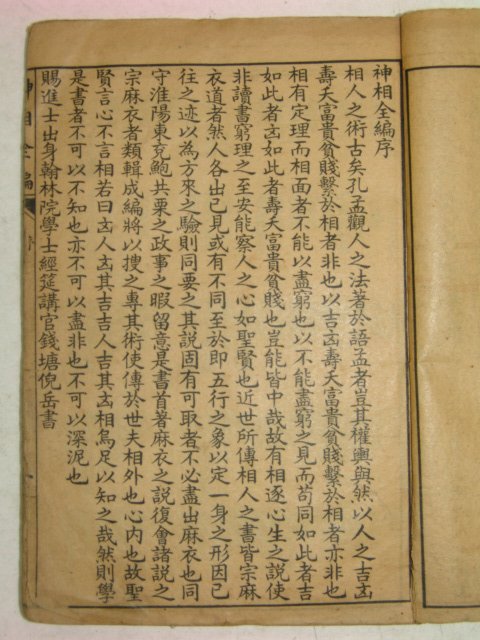 神相全編序
相人之術古矣孔孟觀人之法著於語孟者豈其權輿與然以人之吉㐫
壽夭富貴貧賤繫於相者非也以吉㐫壽夭富貴貧賤繫於相者亦非也
相有定理而相面者不能以盡窮也以不能盡窮之見而苟同如此者吉
如此者㐫如此者壽夭富貴貧賤也豈能皆中哉故有相逐心生之說使
非讀書窮理之至安能察人之心如聖賢也近世所傳相人之書皆宗麻
衣道者然人各出己見或有不同至於即五行之象以定一身之形因已
往之迹以為方來之驗則同要之其說固有可取者不必盡出麻衣也同
守淮陽東兗鮑共栗之政事之暇留意是書首著麻衣之說復會諸說之
宗麻衣者類輯成編將以搜之專其術使傳於世夫相外也心內也故聖
賢言心不言相若曰㐫人㐫其吉吉人吉其㐫相烏足以知之哉然則學
是書者不可以不知也亦不可以盡非也不可以深泥也
賜進士出身翰林院學士經筵講官錢塘倪岳書
神相全編
序